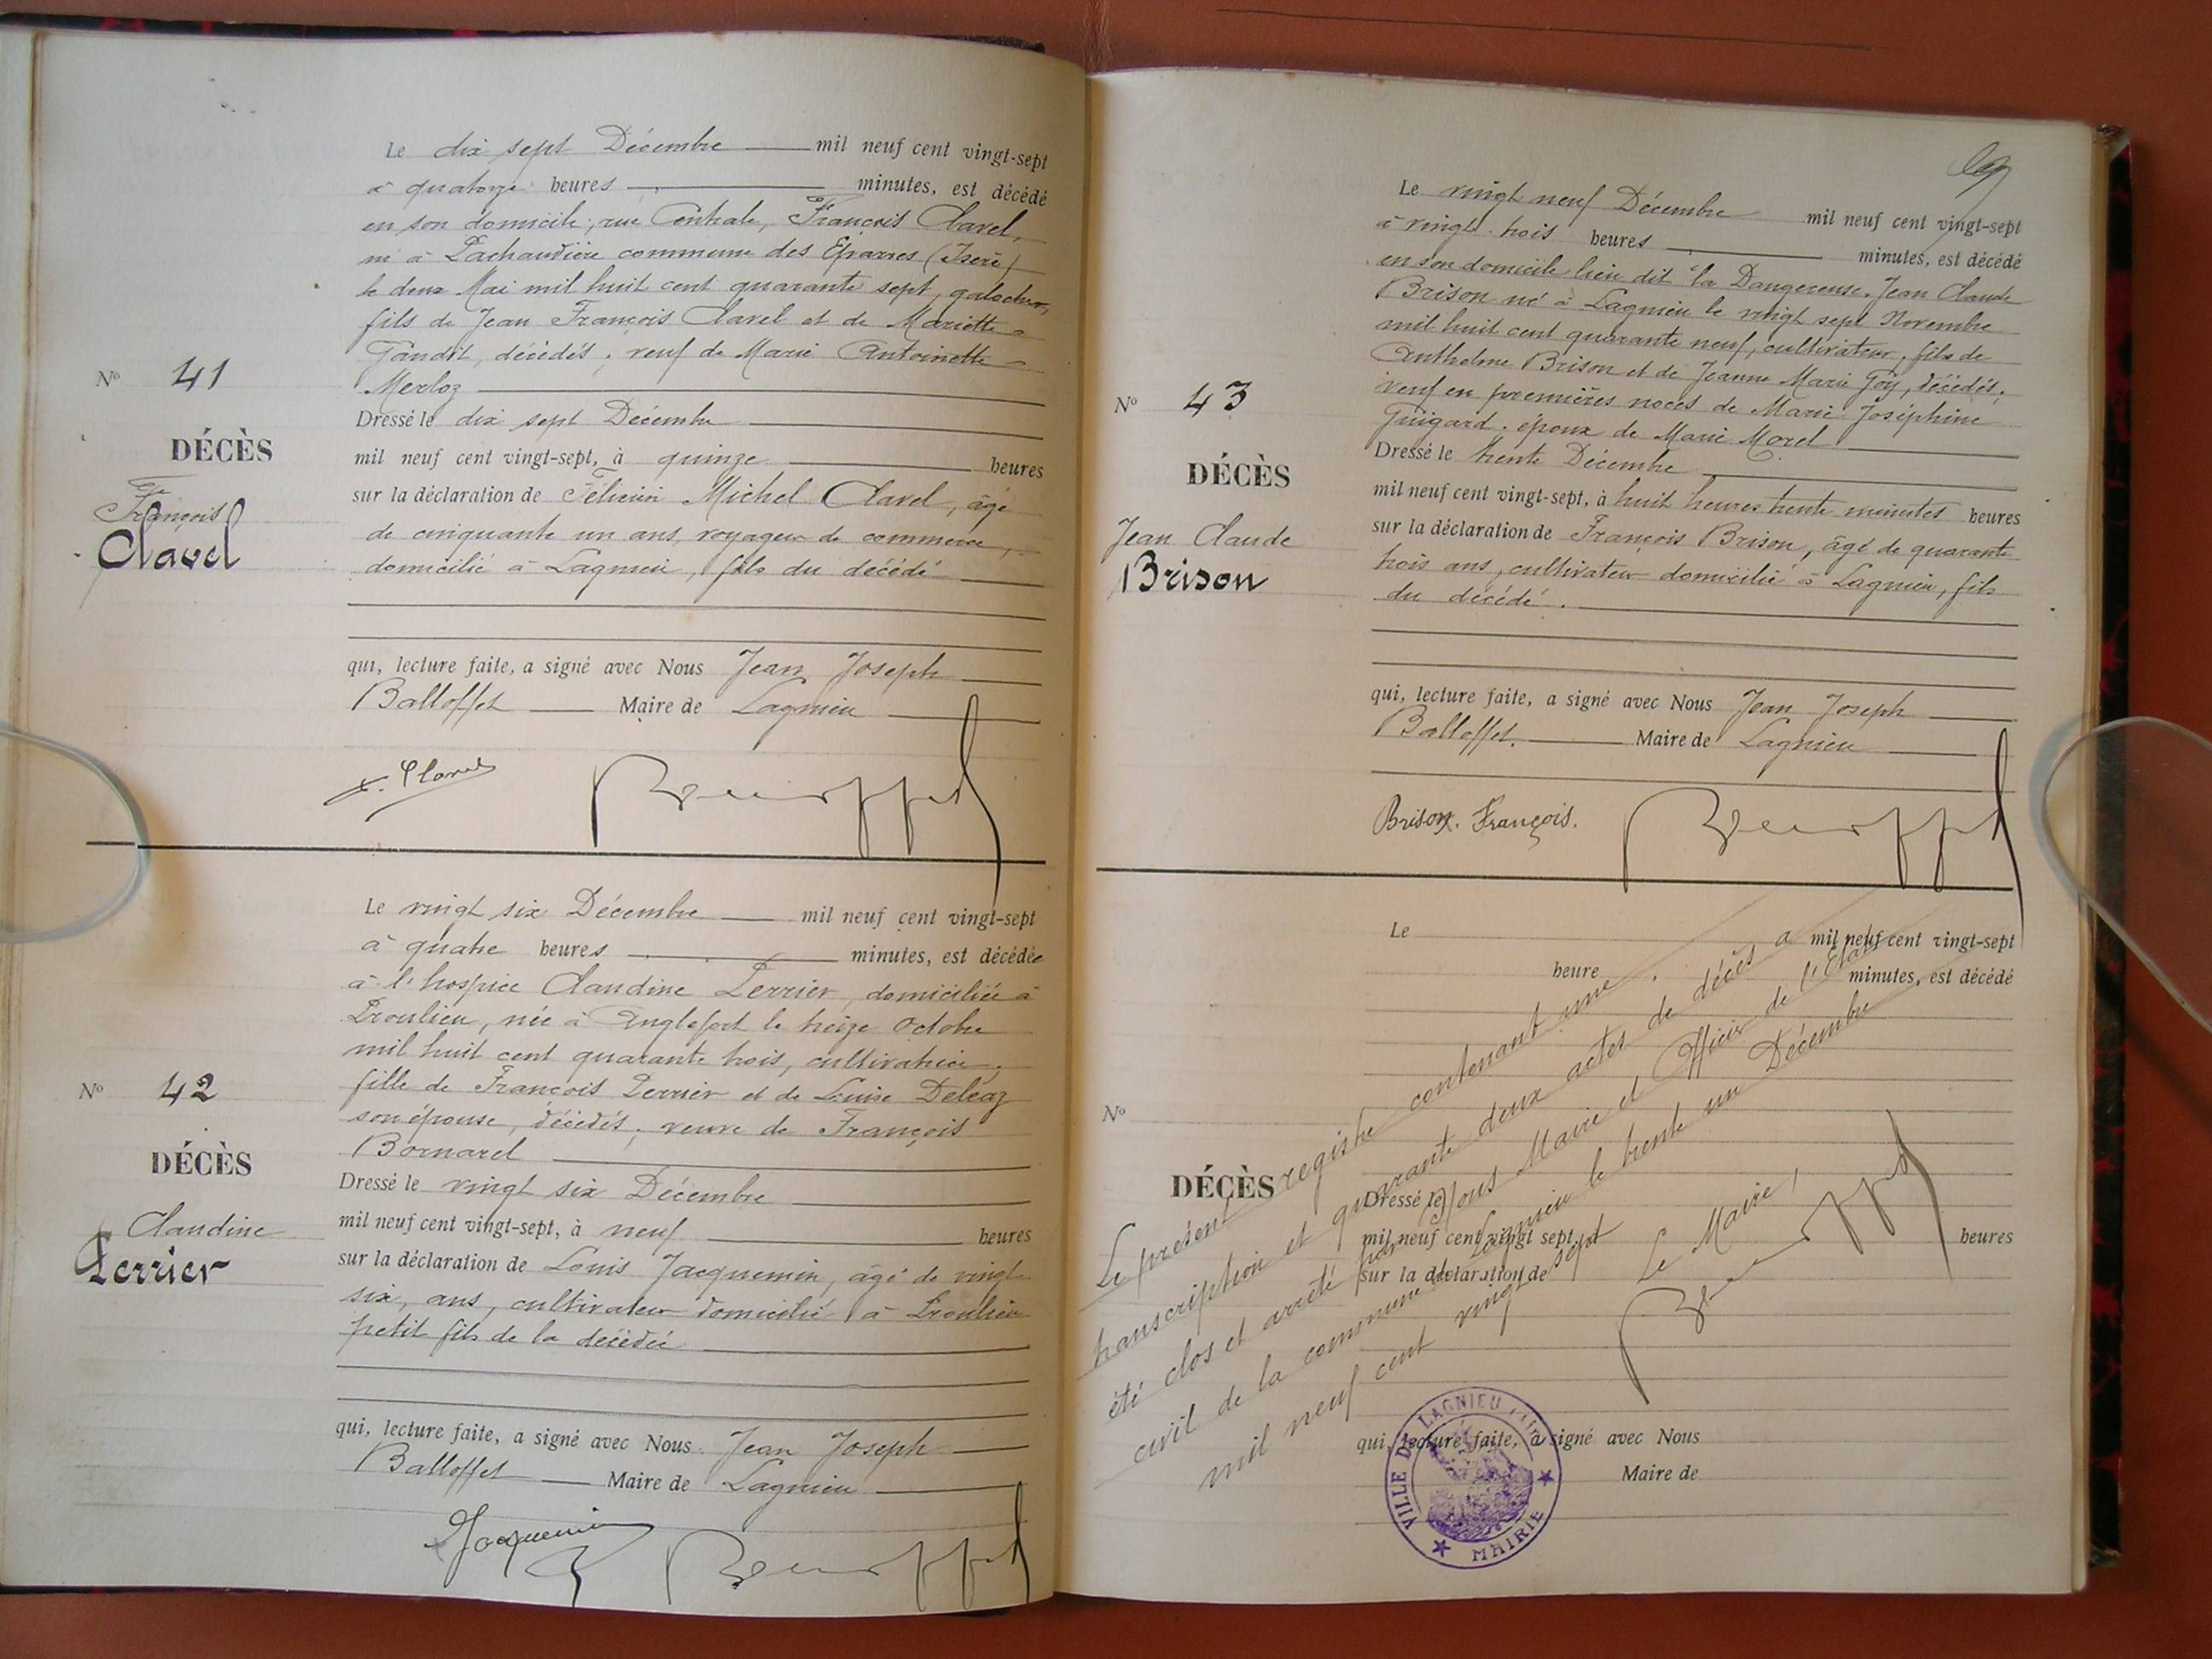 Le dix sept Décembre mil neuf cent vingt-sept
à quatorze heures minutes, est décédé
en son domicile, rue Centrale, François Clavel,
né à Lachaudière commune des Eparres (Isère)
le deux Mai mil huit cent quarante sept, galocher,
fils de Jean François Clavel et de Mariette
Gandit, décédés, veuf de Marie Antoinette
Merloz
Nº 41
DÉCÈS
François
Clavel
Dressé le dix sept Décembre
mil neuf cent vingt-sept, à quinze heures
sur la déclaration de Félicien Michel Clavel, âgé
de cinquante un ans, voyageur de commerce,
domicilié à Lagnieu, fils du décédé
qui, lecture faite, a signé avec Nous Jean Joseph
Balloffet Maire de Lagnieu
F. Clavel Balloffet
Le vingt six Décembre mil neuf cent vingt-sept
à quatre heures minutes, est décédée
à l'hospice Claudine Perrier, domiciliée à
Proulieu, née à Anglefort le treize Octobre
mil huit cent quarante trois, cultivatrice,
fille de François Perrier et de Louise Deleaz
son épouse, décédés, veuve de François
Bornarel
Nº 42
DÉCÈS
Claudine
Perrier
Dressé le vingt six Décembre
mil neuf cent vingt-sept, à neuf heures
sur la déclaration de Louis Jacquemin, âgé de vingt
six, ans, cultivateur domicilié à Proulieu
petit fils de la décédée
qui, lecture faite, a signé avec Nous Jean Joseph
Balloffet Maire de Lagnieu
Jacquemin Balloffet
Le vingt neuf Décembre mil neuf cent vingt-sept
à vingt trois heures minutes, est décédé
en son domicile lieu dit la Dangereuse, Jean Claude
Brison né à Lagnieu le vingt sept Novembre
mil huit cent quarante neuf, cultivateur, fils de
Anthelme Brison et de Jeanne Marie Goy, décédés,
veuf en premières noces de Marie Joséphine
Guigard, époux de Marie Morel
Nº 43
DÉCÈS
Jean Claude
Brison
Dressé le trente Décembre
mil neuf cent vingt-sept, à huit heures trente minutes heures
sur la déclaration de François Brison, âgé de quarante
trois ans, cultivateur domicilié à Lagnieu, fils
du décédé.
qui, lecture faite, a signé avec Nous Jean Joseph
Balloffet. Maire de Lagnieu
Brison. François. Balloffet
Le mil neuf cent vingt-sept
heure minutes, est décédé
Nº
DÉCÈS
Dressé le
mil neuf cent vingt sept, à heures
sur la déclaration de
qui, lecture faite, a signé avec Nous
Maire de
Le présent registre contenant une
transcription et quarante deux actes de décès a
été clos et arrêté par Nous Maire et Officier de l'Etat
civil de la commune de Lagnieu le trente un Décembre
mil neuf cent vingt sept
Le Maire,
Balloffet
VILLE DE LAGNIEU (AIN)
MAIRIE